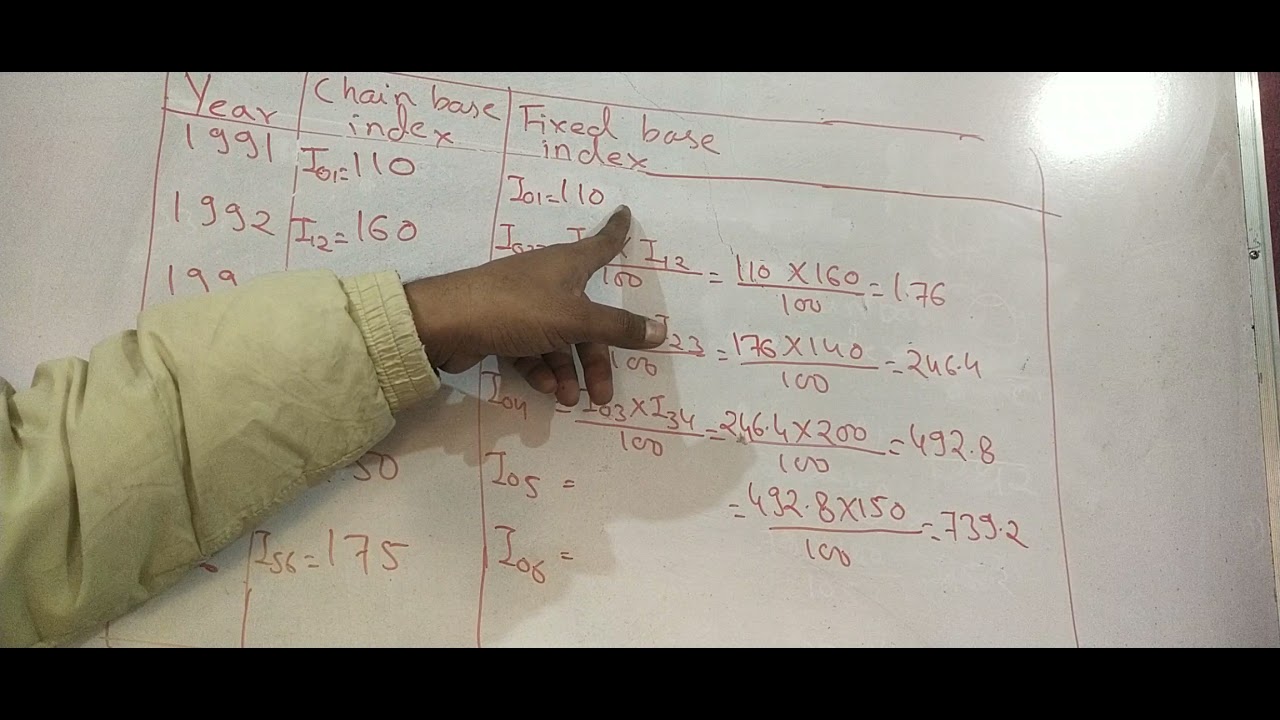 Year Chain base index Fixed base index
1991 I01=110 I01=110
1992 I12=160 I02= I12 / 100 = 110 X160 / 100 = 1.76
199 I23 / 100 = 176 X140 / 100 = 246.4
I04 = I03 X I34 / 100 = 246.4 X 200 / 100 = 492.8
50 I05 = = 492.8 X150 / 100 = 739.2
I56=175 I06 =